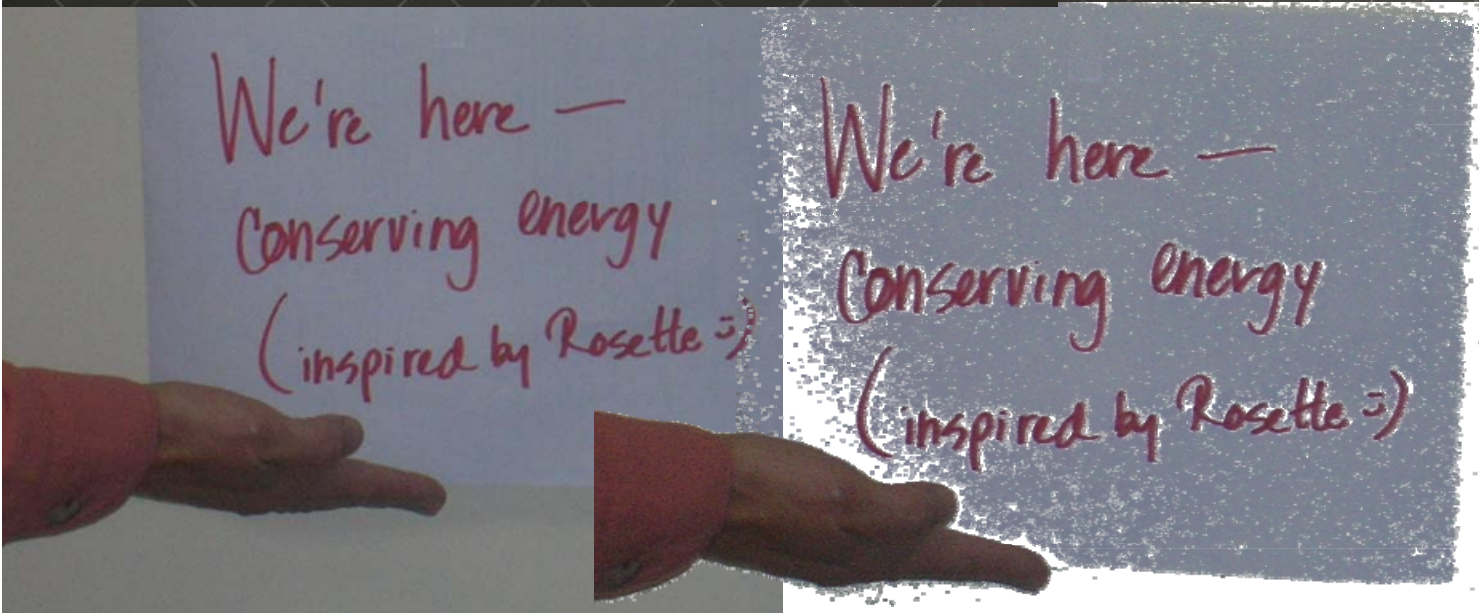 We're here —
Conserving energy
(inspired by Rosette =)
We're here —
Conserving energy
(inspired by Rosette =)